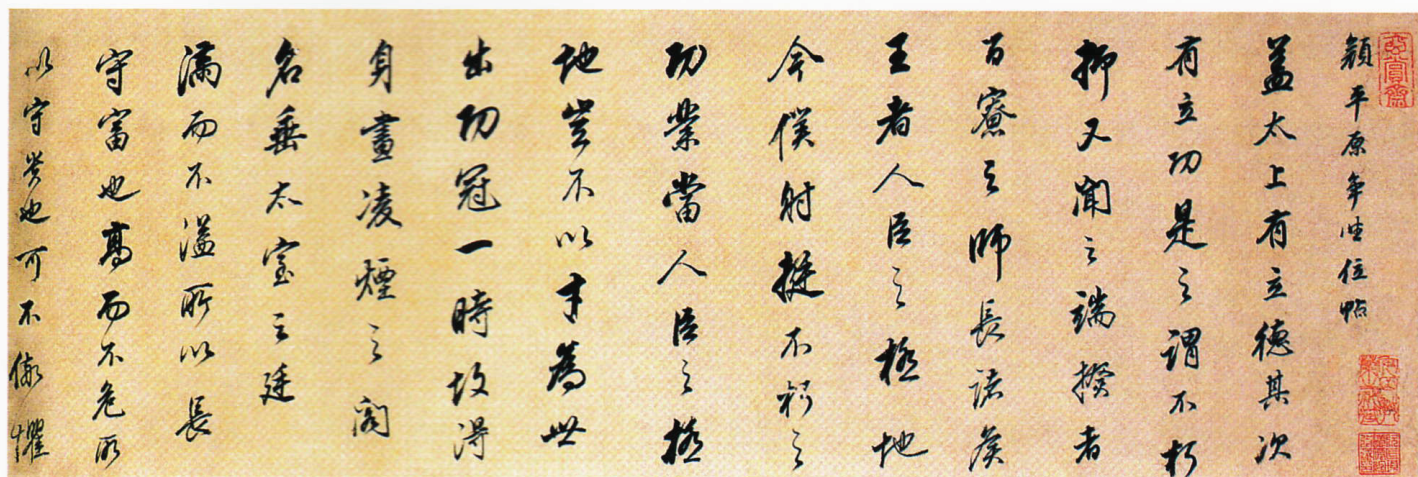 顔平原争坐位帖
蓋太上有立德其次
有立功是之謂不朽
抑又聞之端揆者
百寮之師長諸侯
王者人臣之極地
今僕射挺不朽之
功業當人臣之極
地豈不以才為世
出功冠一時故得
身畫凌煙之閣
名垂太室之廷
滿而不溢所以長
守富也高而不危所
以守貴也可不儆懼